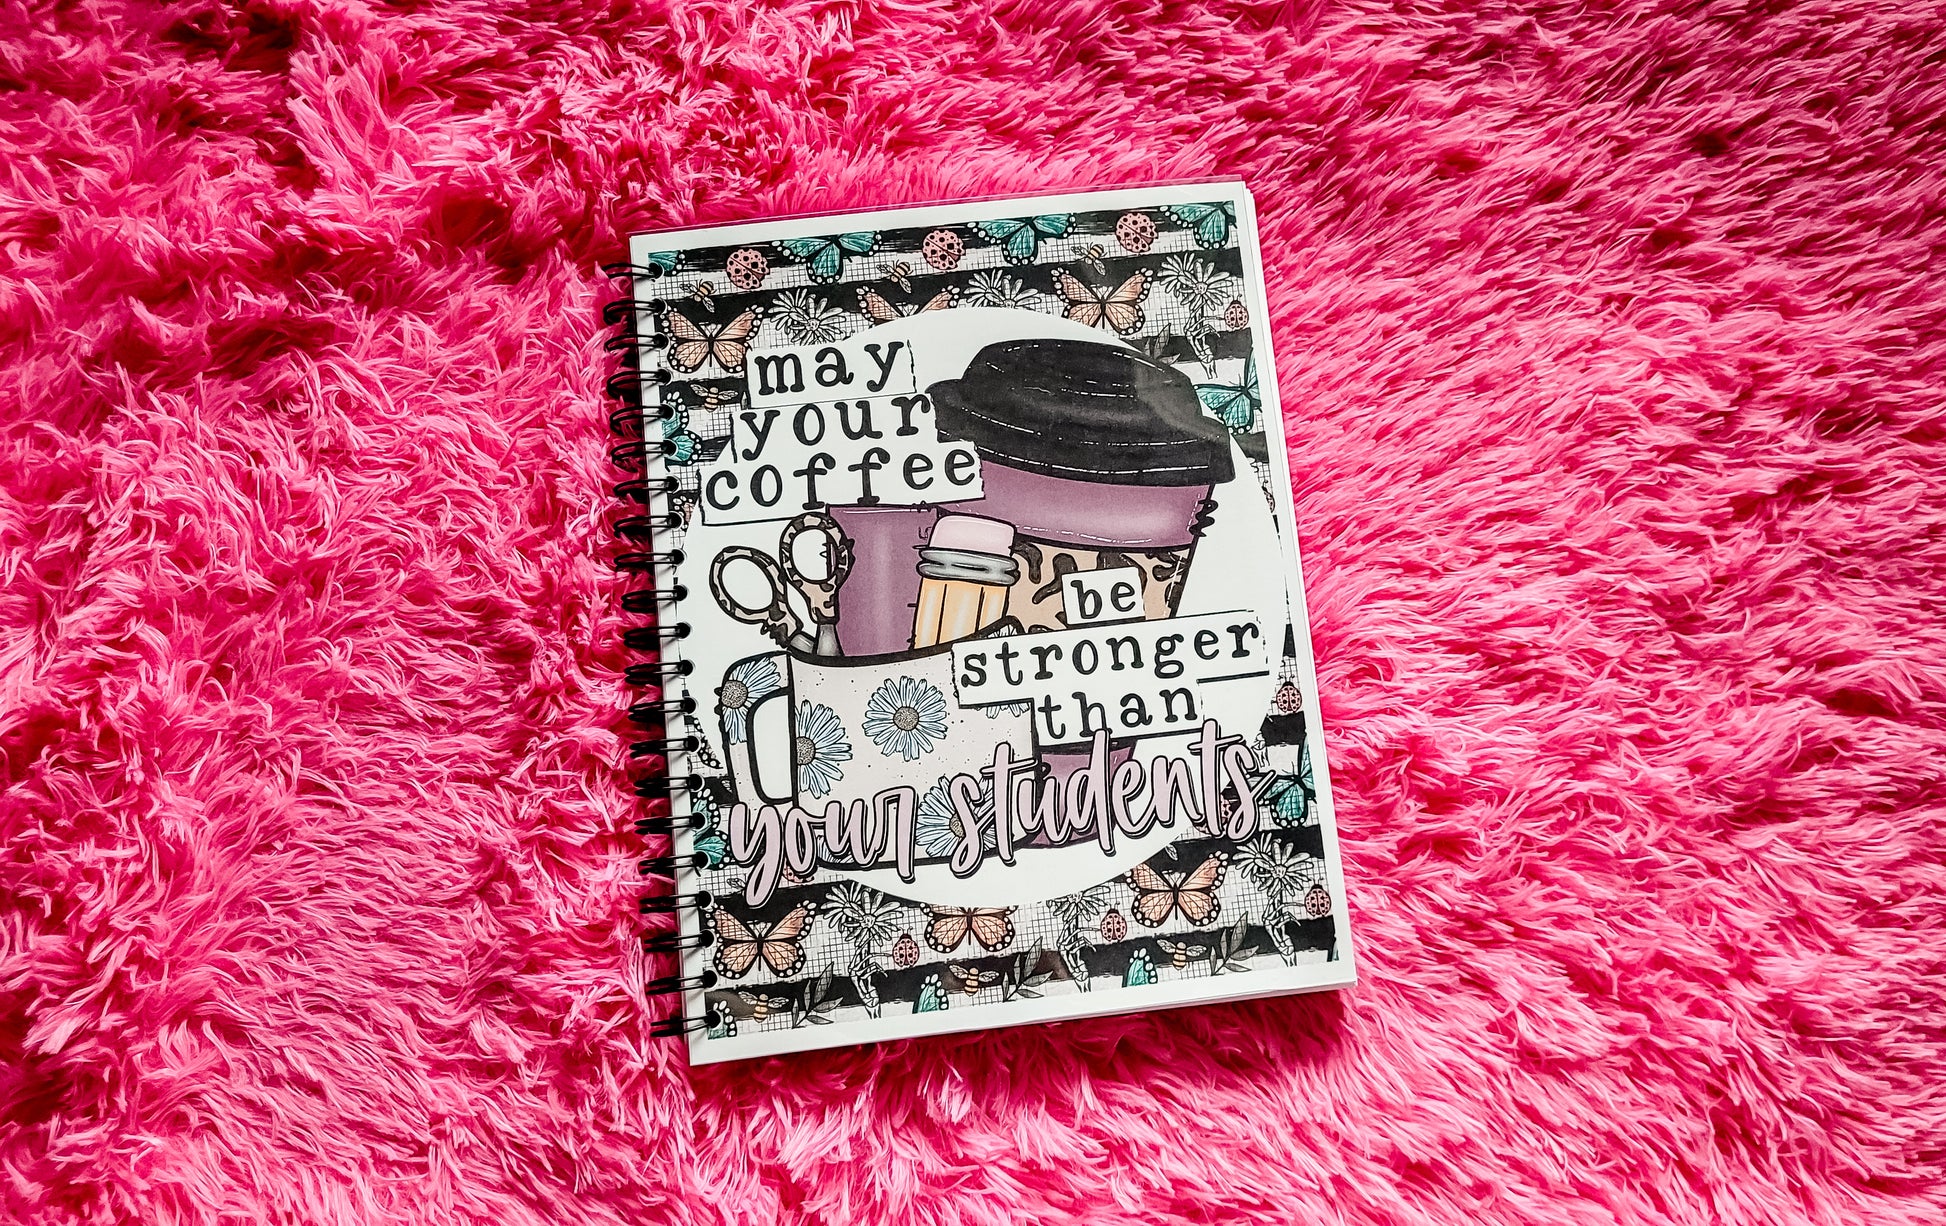 may
your
coffee
be
stronger
than
your students